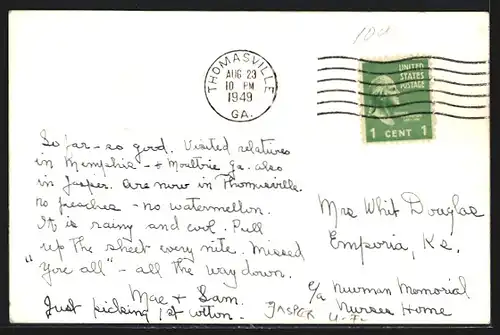 100
THOMASVILLE
AUG 23
10 PM
1949
GA.
UNITED
STATES
POSTAGE
1 CENT 1
So far - so good. Visited relatives
in Memphis - + Moultrie Ga. also
in Jasper. Are now in Thomasville.
no peaches - no watermellon.
It is rainy and cool. Pull
up the sheet every nite. Missed
"you all" - all the way down.
Mae + Sam.
Just picking 1st cotton.
JASPER
Mrs Whit Douglas
Emporia, Ks.
c/o Newman Memorial
Nurses Home